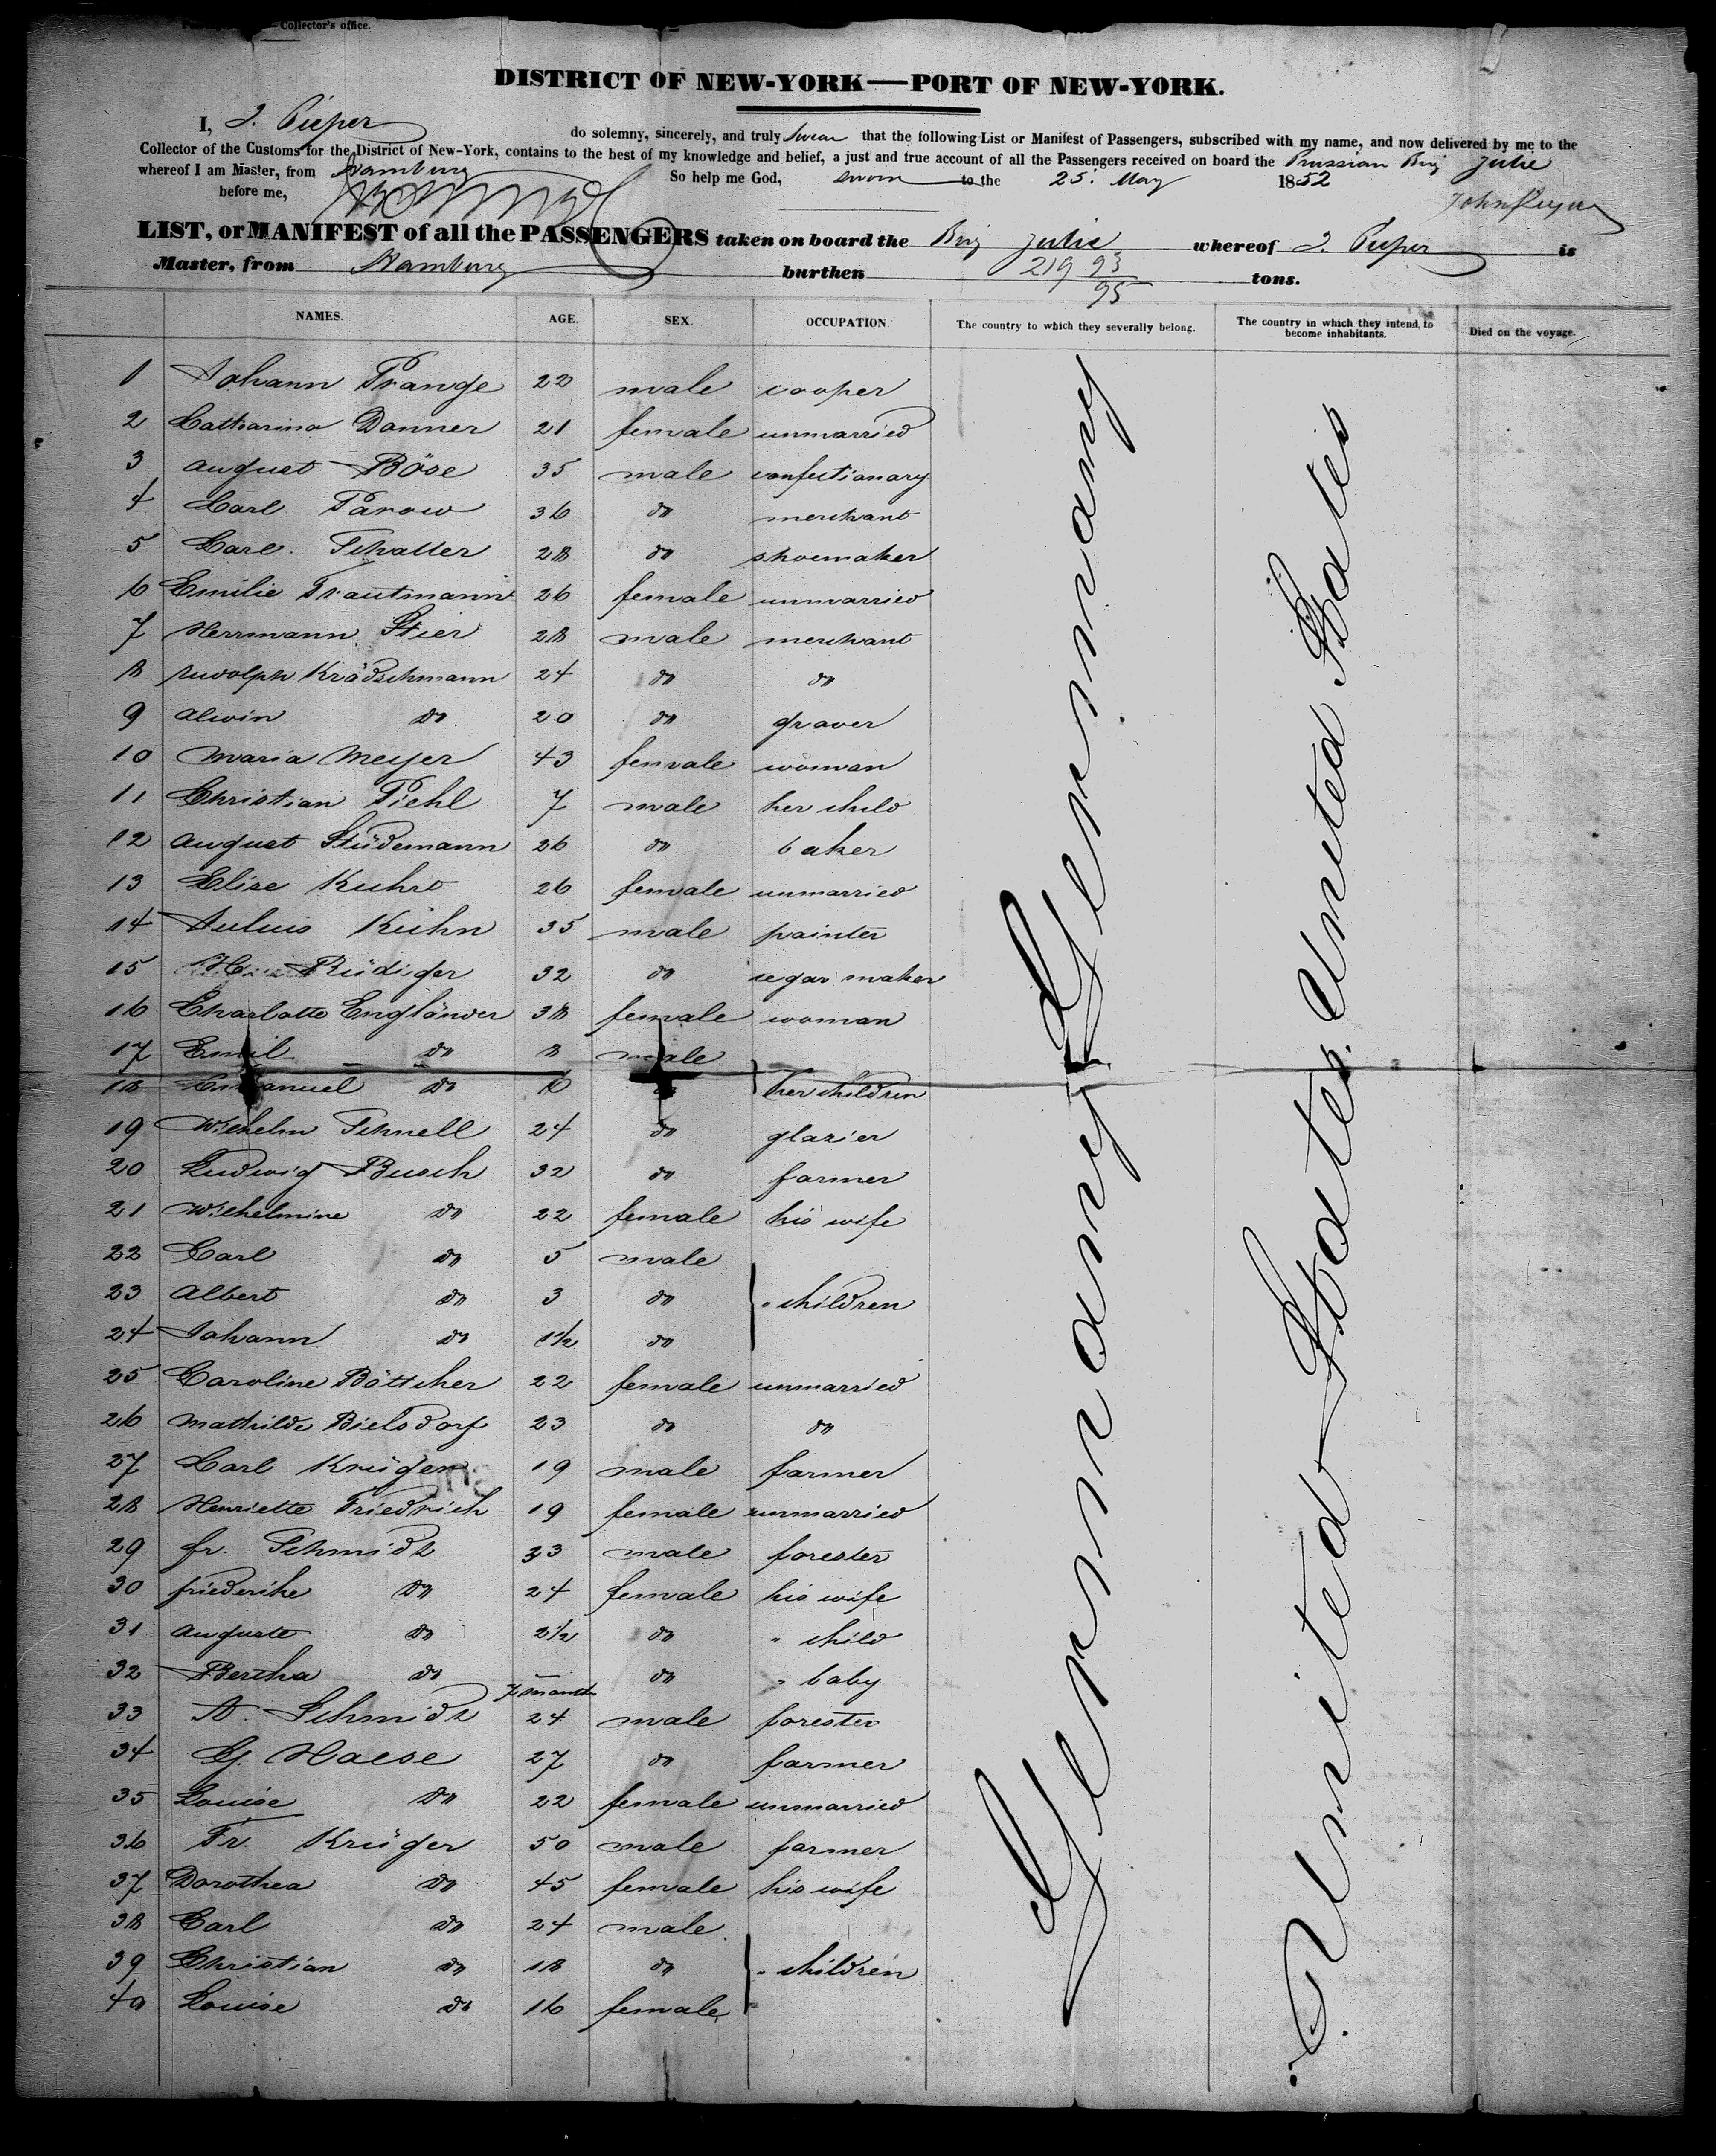 Collector's office.
DISTRICT OF NEW-YORK—PORT OF NEW-YORK.
I, J. Pieper do solemny, sincerely, and truly swear that the following List or Manifest of Passengers, subscribed with my name, and now delivered by me to the
Collector of the Customs for the District of New-York, contains to the best of my knowledge and belief, a just and true account of all the Passengers received on board the Prussian Brig Julie
whereof I am Master, from Hamburg So help me God, sworn to the 25. May 1852
before me,
LIST, or MANIFEST of all the PASSENGERS taken on board the Brig Julie whereof J. Pieper is
Master, from Hamburg burthen 219 93/95 tons.
NAMES. AGE. SEX. OCCUPATION. The country to which they severally belong. The country in which they intend to become inhabitants. Died on the voyage.
1 Johann Prange 22 male cooper
2 Catharina Danner 21 female unmarried
3 August Böse 35 male confectionary
4 Carl Parow 36 do merchant
5 Carl Schatter 28 do shoemaker
6 Emilie Trautmann 26 female unmarried
7 Herrmann Stier 28 male merchant
8 Rudolph Krädschmann 24 do do
9 Alwin do 20 do graver
10 Maria Meyer 43 female woman
11 Christian Piehl 7 male her child
12 August Stüdemann 26 do baker
13 Elise Kuhrt 26 female unmarried
14 Julius Kühn 35 male painter
15 Rüdiger 32 do segar maker
16 Charlotte Engländer 38 female woman
17 Emil do 8 male
18 Emanuel do 6 do } her children
19 Wilhelm Schnell 24 do glazier
20 Ludwig Busch 32 do farmer
21 Wilhelmine do 22 female his wife
22 Carl do 5 male
23 Albert do 3 do } " children
24 Johann do 1½ do
25 Caroline Böttcher 22 female unmarried
26 Mathilde Bielsdorf 23 do do
27 Carl Krüger 19 male farmer
28 Henriette Friedrich 19 female unmarried
29 fr. Schmidt 33 male forester
30 friederike do 24 female his wife
31 Auguste do 2½ do " child
32 Bertha do 7 month do " baby
33 A. Schmidt 24 male forester
34 G. Haese 27 do farmer
35 Louise do 22 female unmarried
36 Fr. Krüger 50 male farmer
37 Dorothea do 45 female his wife
38 Carl do 24 male
39 Christian do 18 do } " children
40 Louise do 16 female
Germany Germany
United States United States